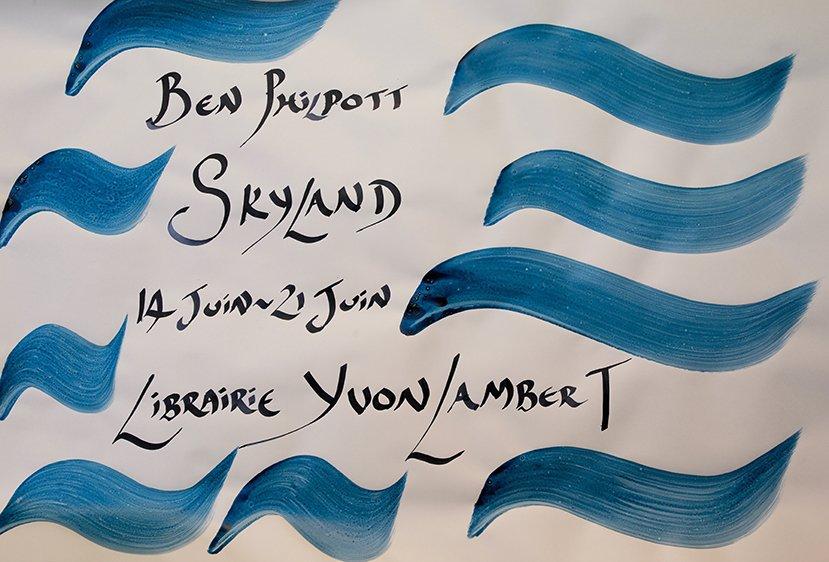 Ben Philpott
Skyland
14 Juin ~ 21 Juin
Librairie Yvon Lambert